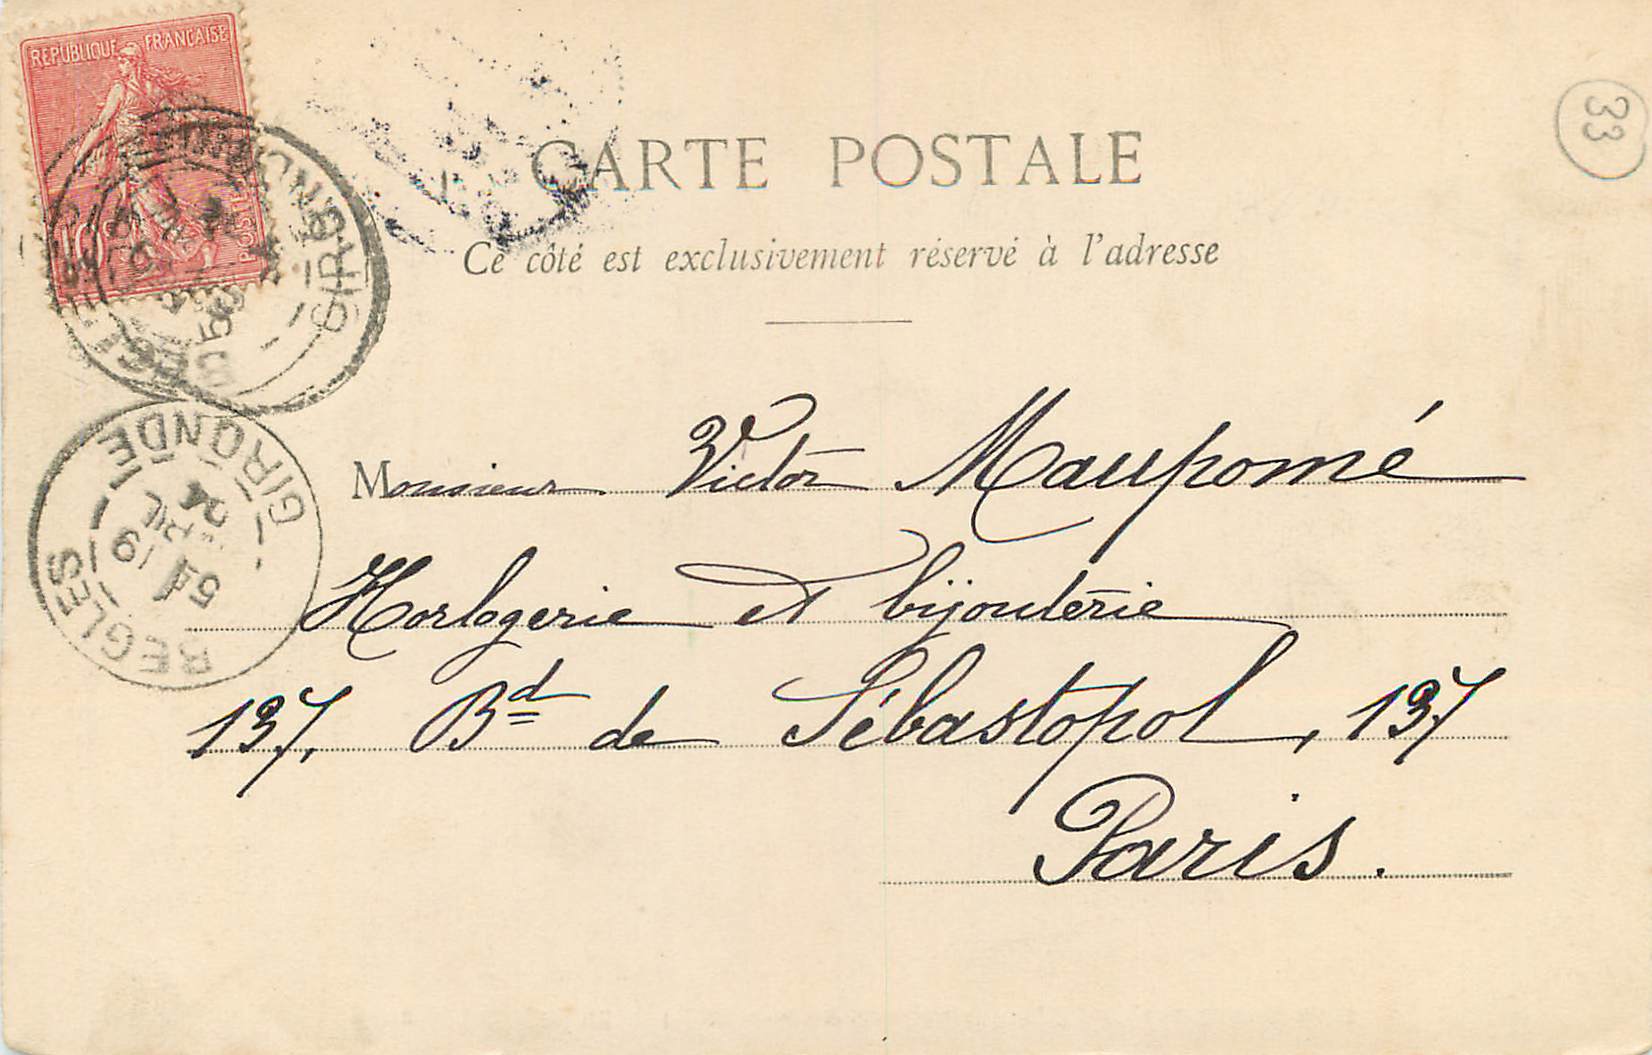 REPUBLIQUE FRANÇAISE
POSTES
10
33
CARTE POSTALE
Ce côté est exclusivement réservé à l'adresse
BEGLES
GIRONDE
Monsieur Victor Maupomé
Horlogerie et bijouterie
137, Bd de Sébastopol, 137
Paris.